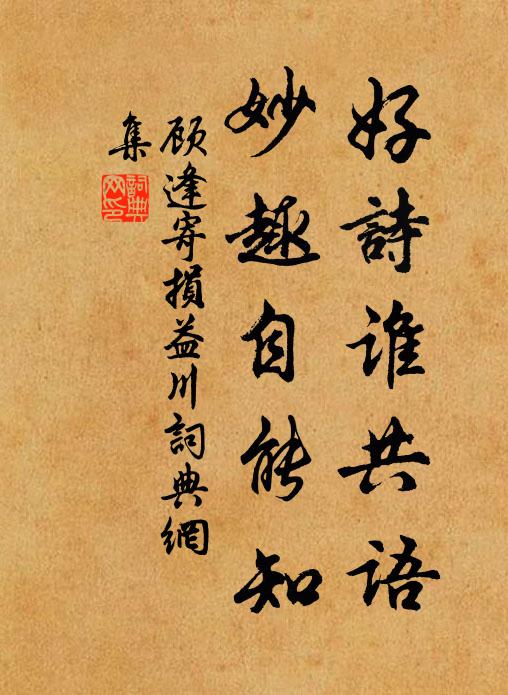 好詩誰共語
妙趣自能知
顾逢寄損益川詞典網
集
詞典
网印